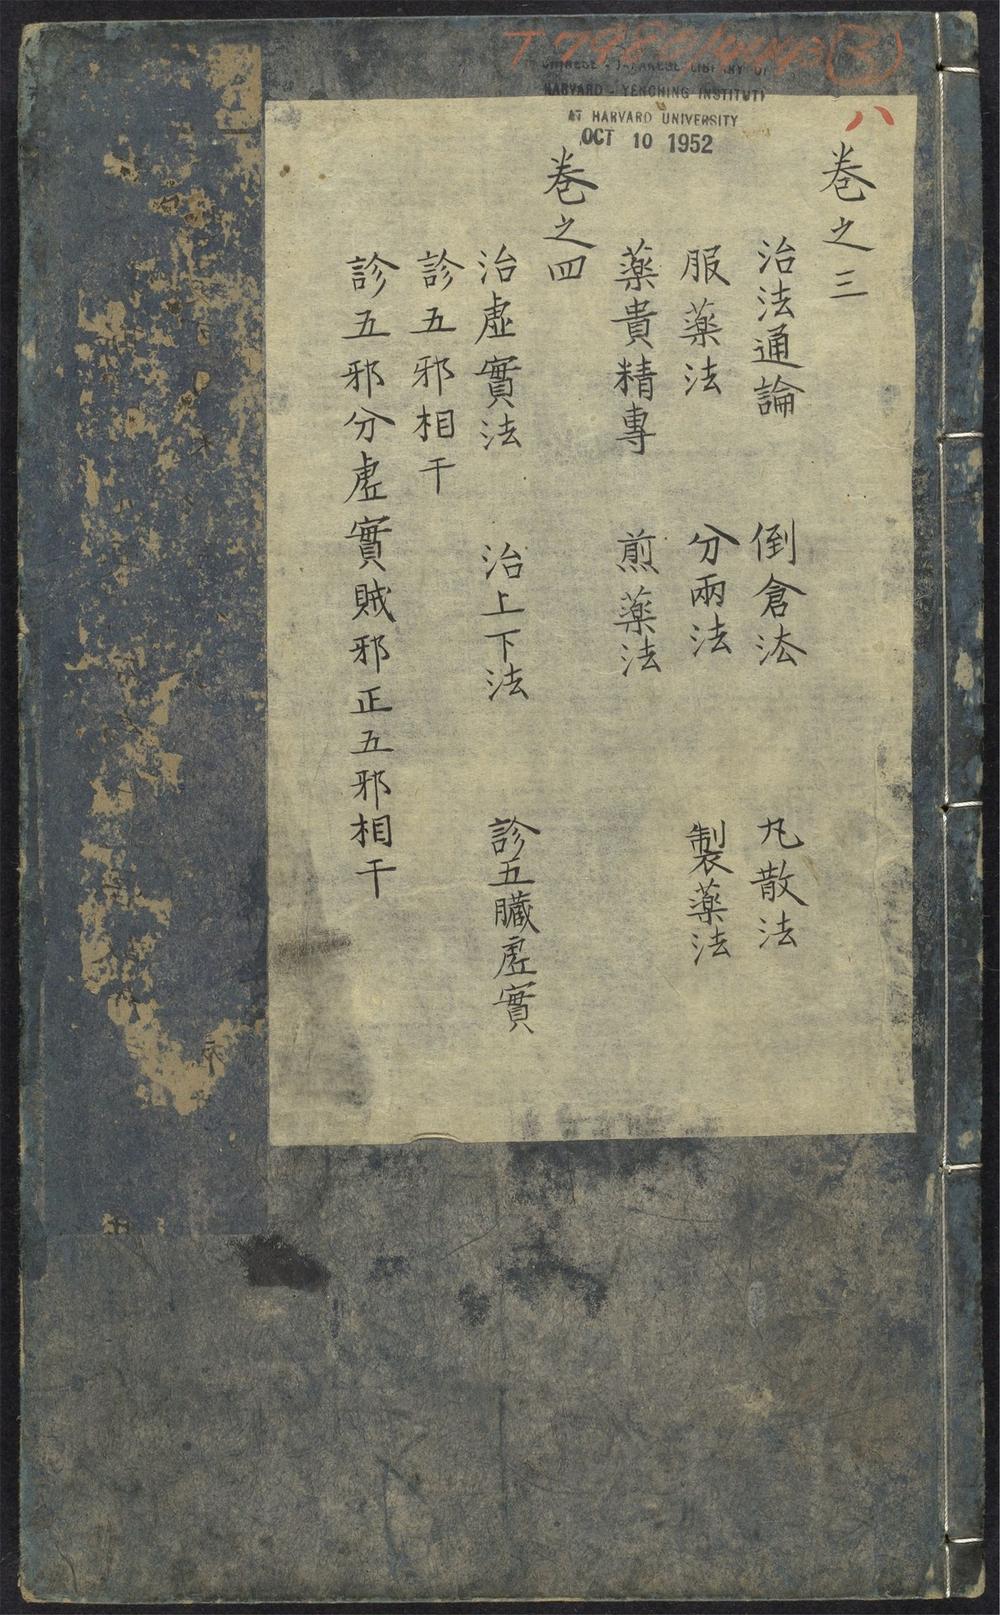 T7980/4443 (3)
CHINESE - JAPANESE LIBRARY OF
HARVARD - YENCHING INSTITUTE
AT HARVARD UNIVERSITY
OCT 10 1952
八
卷之三
治法通論 倒倉法 丸散法
服薬法 分兩法 製薬法
薬貴精專 煎薬法
卷之四
治虛實法 治上下法 診五臟虛實
診五邪相干
診五邪分虛實賊邪正五邪相干